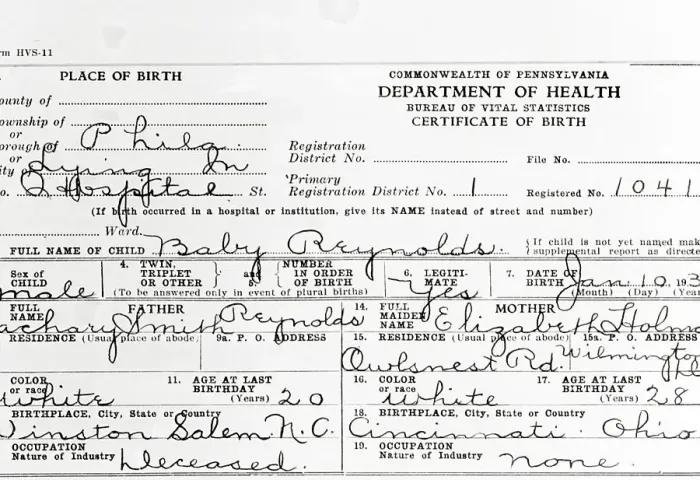 rm HVS-11
PLACE OF BIRTH
COMMONWEALTH OF PENNSYLVANIA
DEPARTMENT OF HEALTH
BUREAU OF VITAL STATISTICS
CERTIFICATE OF BIRTH
ounty of
ownship of
or
orough of Phila.
or
ity of Lying In
o. Hospital St.
Registration
District No. File No.
Primary
Registration District No. 1 Registered No. 1041
(If birth occurred in a hospital or institution, give its NAME instead of street and number)
Ward.
FULL NAME OF CHILD Baby Reynolds.
If child is not yet named mak
supplemental report as directe
Sex of
CHILD male
4. TWIN,
TRIPLET
OR OTHER
and
5.
NUMBER
IN ORDER
OF BIRTH
(To be answered only in event of plural births)
6. LEGITI-
MATE Yes
7. DATE OF
BIRTH Jan 10 193
(Month) (Day) (Yea
FULL FATHER
NAME achary Smith Reynolds
14. FULL MOTHER
MAIDEN
NAME Elizabeth Holm
RESIDENCE (Usual place of abode) 9a. P. O. ADDRESS
15. RESIDENCE (Usual place of abode) 15a. P. O. ADDRESS
Owlsnest Rd. Wilmington
COLOR
or race white
11. AGE AT LAST
BIRTHDAY
(Years) 20
16. COLOR
or race white
17. AGE AT LAST
BIRTHDAY
(Years) 28
BIRTHPLACE, City, State or Country
inston Salem. N.C.
18. BIRTHPLACE, City, State or Country
Cincinnati. Ohio
OCCUPATION
Nature of Industry Deceased.
19. OCCUPATION
Nature of Industry none.